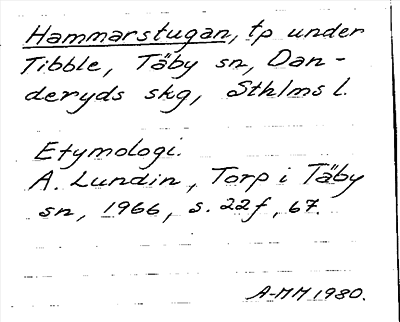 Hammarstugan, tp under
Tibble, Täby sn, Dan-
deryds skg, Sthlms l.
Etymologi.
A. Lundin, Torp i Täby
sn, 1966, s. 22f, 67.
A-MM 1980.